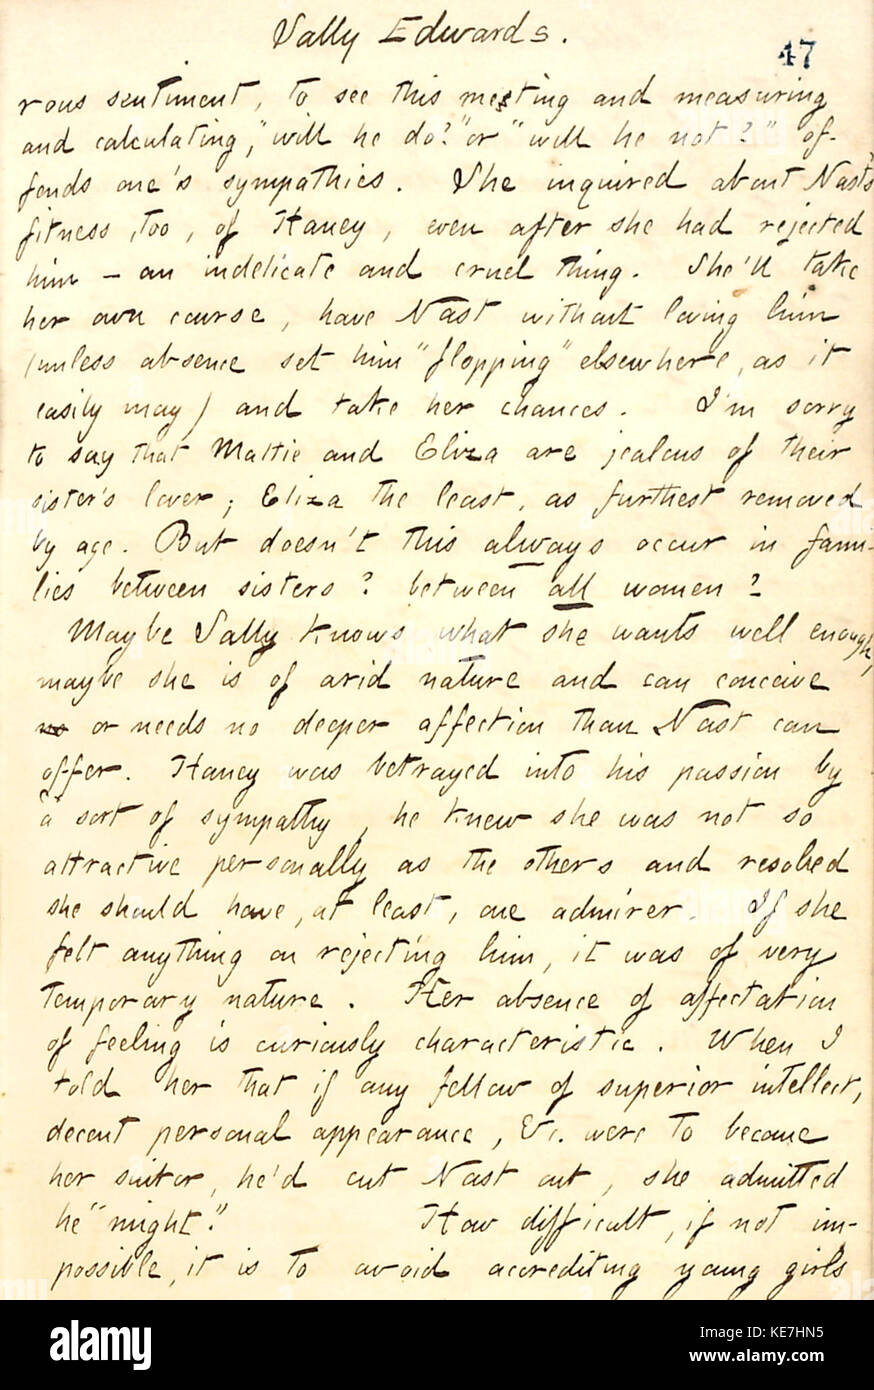 Sally Edwards.
47
rous sentiment, to see this meeting and measuring
and calculating, "will he do?" or "will he not?" of-
fends one's sympathies. She inquired about Nast's
fitness, too, of Haney, even after she had rejected
him — an indelicate and cruel thing. She'll take
her own course, have Nast without loving him
(unless absence set him "flopping" elsewhere, as it
easily may) and take her chances. I'm sorry
to say that Mattie and Eliza are jealous of their
sister's lover; Eliza the least, as furthest removed
by age. But doesn't this always occur in fami-
lies between sisters? between all women?
Maybe Sally knows what she wants well enough,
maybe she is of arid nature and can conceive
no or needs no deeper affection than Nast can
offer. Haney was betrayed into his passion by
a sort of sympathy, he knew she was not so
attractive personally as the others and resolved
she should have, at least, one admirer. If she
felt anything on rejecting him, it was of very
temporary nature. Her absence of affectation
of feeling is curiously characteristic. When I
told her that if any fellow of superior intellect,
decent personal appearance, &c. were to become
her suitor, he'd cut Nast out, she admitted
he "might." How difficult, if not im-
possible, it is to avoid accrediting young girls
alamy
Image ID: KE7HN5
www.alamy.com